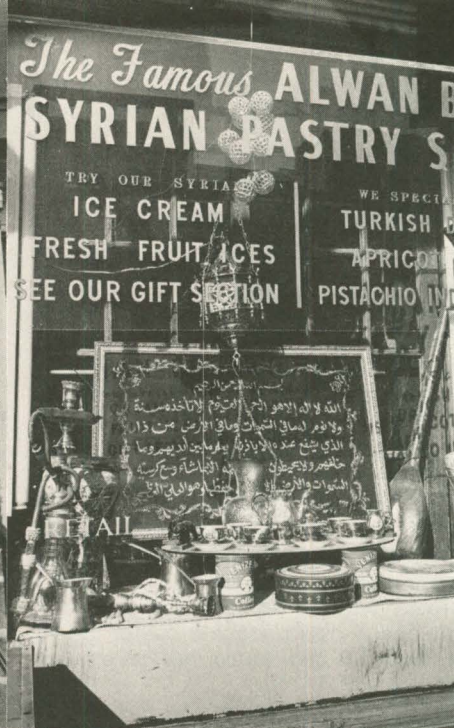 The Famous ALWAN B
SYRIAN PASTRY S
TRY OUR SYRIA
ICE CREAM
FRESH FRUIT ICES
SEE OUR GIFT SECTION
WE SPECI
TURKISH
APRICOT
PISTACHIO
بسم الله الرحمن الرحيم
الله لا اله الا هو الحي القيوم لا تأخذه سنة
ولا نوم له ما في السموات وما في الارض من ذا
الذي يشفع عنده الا باذنه يعلم ما بين ايديهم وما
خلفهم ولا يحيطون شاء وسع كرسيه
السموات والارض حفظهما وهو العلي
ETAIL